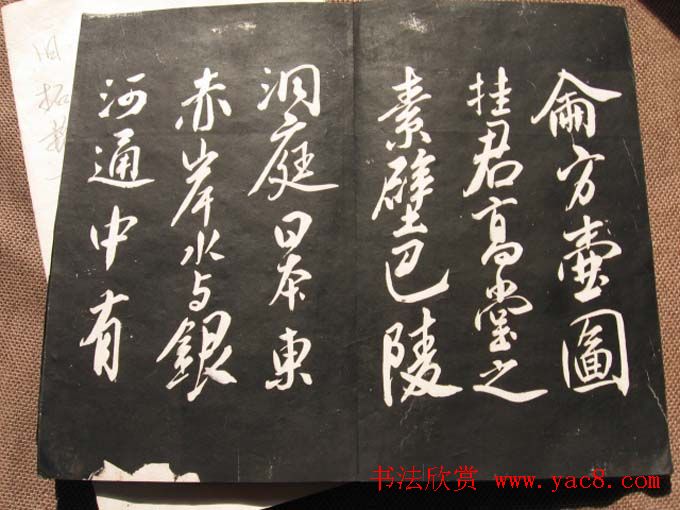 侖方壺圖
挂君高堂之
素壁巴陵
洞庭日本東
赤岸水与銀
河通中有
旧拓
书法欣赏 www.yac8.com